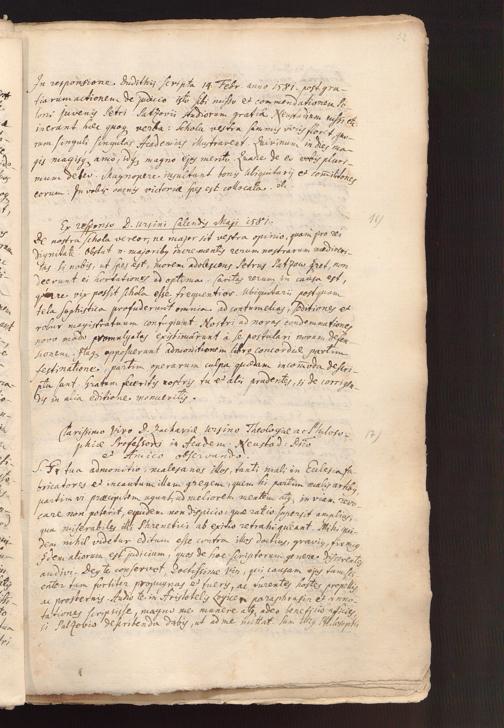 32
In responsione Dudithii scripta 14 Febr. anno 1581. post gra-
tiarum actionem de judicio isto sibi misso et commendationem Po-
loni juvenis Petri studiorum gratia Neustadium missi etc.
inerant haec quoque verba: Schola vestra summis viris floret, quo-
rum singuli singulas Academias illustrarent. Quirinum in dies ma-
gis magisque amo, idque magno ejus merito. Quare de eo vobis pluri-
mum debeo. Magnopere insultant bonis Ubiquitarii et
eorum. In vobis omnis victoriae spes est collocata. etc.
Ex responso D. Ursini Calendis Maji 1581.
16)
De nostra schola vereor, ne major sit vestra opinio, quam pro rei
dignitate. Obstat majoribus incrementis rerum nostrarum mediocri-
tas. Si nobis, ut spes est, morem adolescens Petrus geret, non
deerunt ei hortationes ad optima. Caritas rerum in causa est,
quare vix possit schola esse frequentior. Ubiquitarii postquam
tela sophistica profuderunt omnia, ad contumelias, seditiones et
robur magistratuum confugiunt. Nostri ad novas condemnationes
novo modo promulgatas existimarunt a se postulari novam defen-
sionem. opposuerunt admonitionem libro concordiae, partim
festinatione, partim operarum culpa quaedam incommode descri-
pta sunt. Gratum feceritis nostris tu et alii prudentes, si de corrigen-
dis in alia editione monueritis.
Clarissimo Viro D. Zachariae Ursino Theologiae ac Philoso-
17)
phiae Professori in Academ. Neustad. Dno
et Amico observando.
S. P. tua admonitio malesanos illos, tanti mali in Ecclesia fa-
bricatores et incautum illum gregem, quem hi partim malis artibus,
partim vi praecipitem agunt, ad meliorem mentem atque in viam revo-
care non poterit, equidem non dispicio, quae ratio supersit amplius,
qua miserabiles illi Phrenetici ab exitio retrahi queant. Mihi qui-
dem nihil videtur editum esse contra illos doctius, gravius, firmius.
Idem aliorum est judicium, quos de hoc scriptorum genere disserentes
audivi. Deus te conservet Doctissime Vir, qui causam ejus tam
tam fortiter propugnas et fueris, ac furentes hostes propellis,
ac prosternis. Audio te in Aristotelis Logica paraphrasin et anno-
tationes scripsisse, magno me munere atque adeo beneficio affeceris,
si describenda dabis, ut ad me mittat. Sum Philosophis